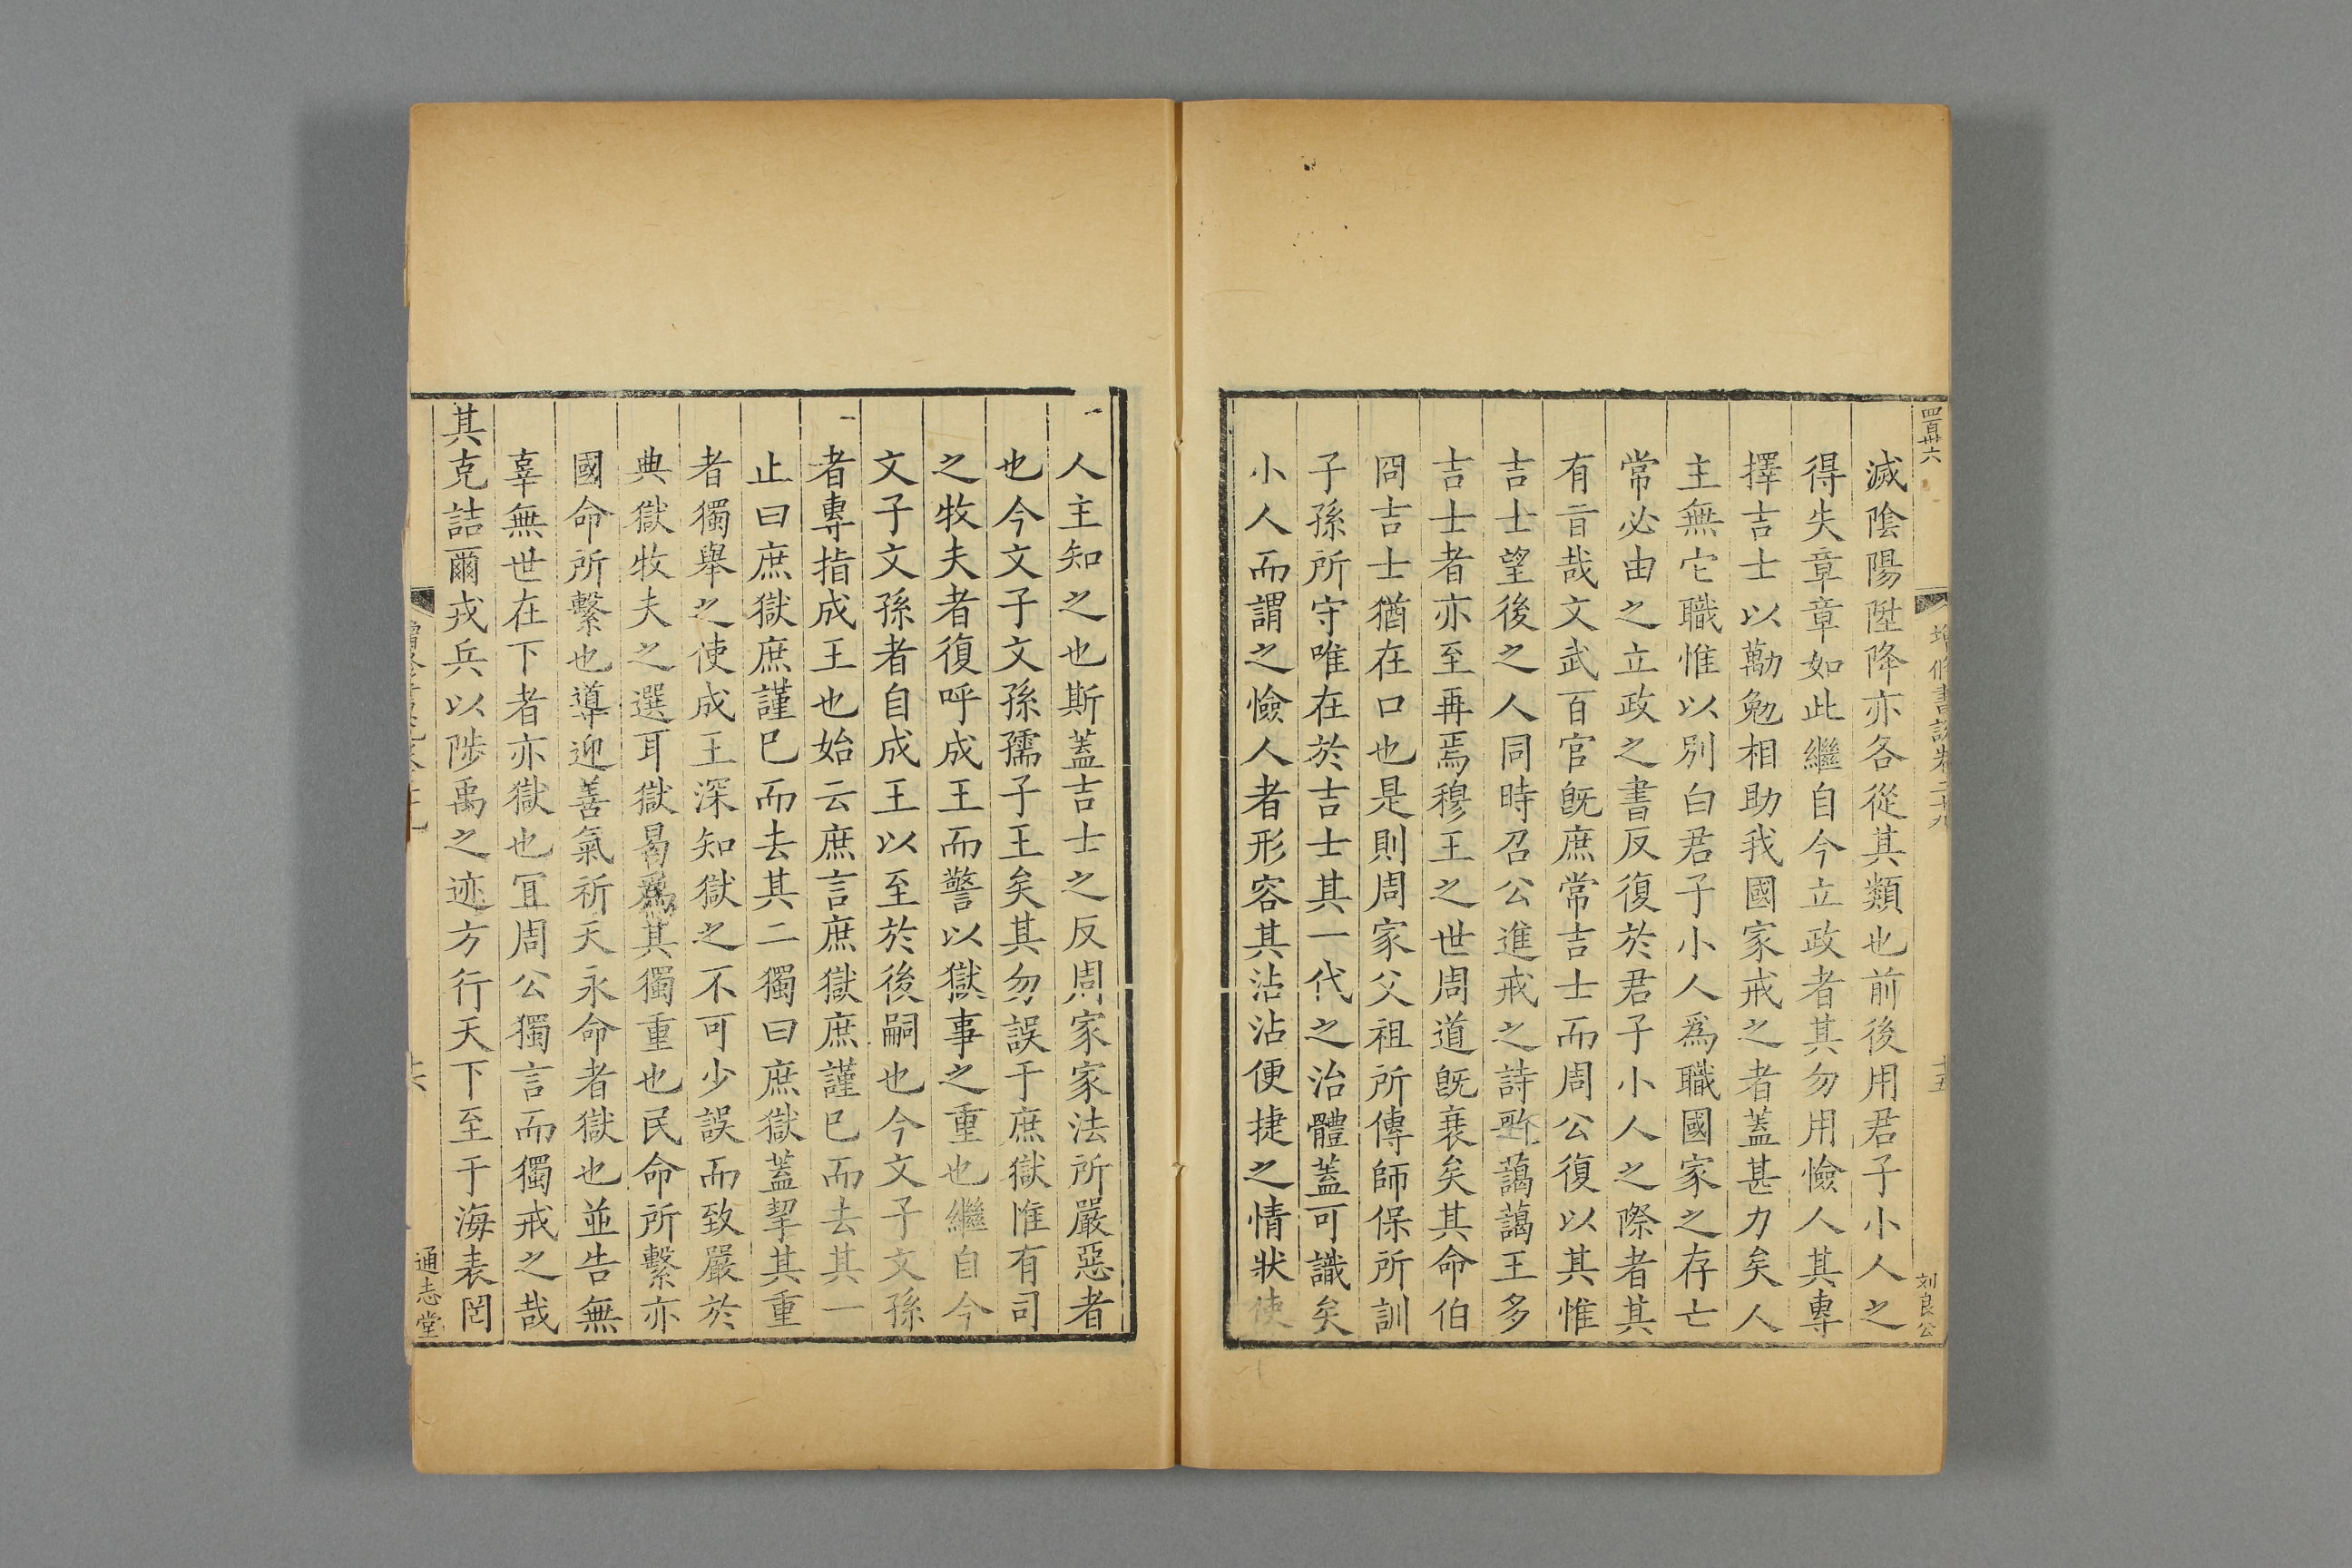 四百卅六
増脩書説卷二十九
十五
刘良公
滅陰陽陞降亦各從其類也前後用君子小人之
得失章章如此繼自今立政者其勿用憸人其專
擇吉士以勱勉相助我國家戒之者蓋甚力矣人
主無它職惟以別白君子小人爲職國家之存亡
常必由之立政之書反復於君子小人之際者其
有㫖哉文武百官旣庶常吉士而周公復以其惟
吉士望後之人同時召公進戒之詩歌藹藹王多
吉士者亦至再焉穆王之世周道旣衰矣其命伯
冏吉士猶在口也是則周家父祖所傳師保所訓
子孫所守唯在於吉士其一代之治體蓋可識矣
小人而謂之憸人者形容其沾沾便捷之情狀使
人主知之也斯蓋吉士之反周家家法所嚴惡者
也今文子文孫孺子王矣其勿誤于庶獄惟有司
之牧夫者復呼成王而警以獄事之重也繼自今
文子文孫者自成王以至於後嗣也今文子文孫
者專指成王也始云庶言庶獄庶謹巳而去其一
止曰庶獄庶謹巳而去其二獨曰庶獄蓋挈其重
者獨舉之使成王深知獄之不可少誤而致嚴於
典獄牧夫之選耳獄曷爲其獨重也民命所繫亦
國命所繫也導迎善氣祈天永命者獄也並告無
辜無世在下者亦獄也冝周公獨言而獨戒之哉
其克詰爾戎兵以陟禹之迹方行天下至于海表罔
十六
通志堂